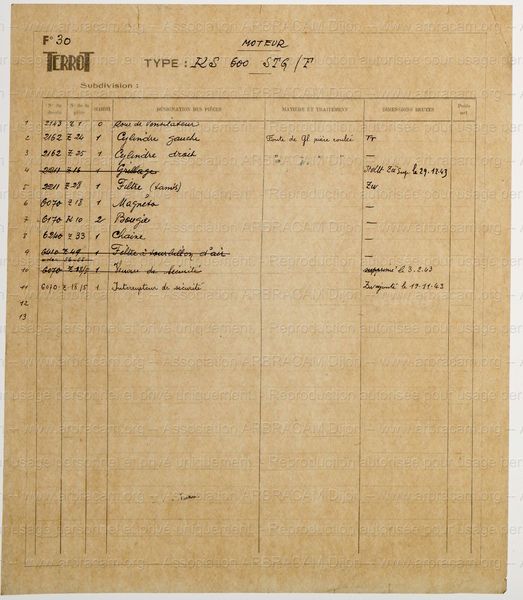 F° 30
MOTEUR
TERROT
TYPE : RS 600 STG/F
Subdivision :
N° du dessin N° de la pièce NOMBRE DÉSIGNATION DES PIÈCES MATIÈRE ET TRAITEMENT DIMENSIONS BRUTES Poids net
1 2143 Z 1 0 Roue de Ventilateur
2 2162 Z 24 1 Cylindre gauche Fonte de Gl
3 2162 Z 25 1 Cylindre droit " " " "
4 2211 Z 16 1 Grillage le 29.12.43
5 2211 Z 28 1 Filtre (tamis)
6 6070 Z 18 1 Magnéto
7 6170 10 2 Bougie
8 6240 Z 33 1 Chaîne
9 6010 Z 49 1 Filtre à tourbillon d'air
10 6070 Z 18/5 1 de sécurité supprimé le 3.2.43
11 6070 Z 18/5 1 Interrupteur de sécurité ajouté le 19.11.43
12
13
www.arbracam.org – Association ARBRACAM Dijon – Reproduction autorisée pour usage personnel et privé uniquement